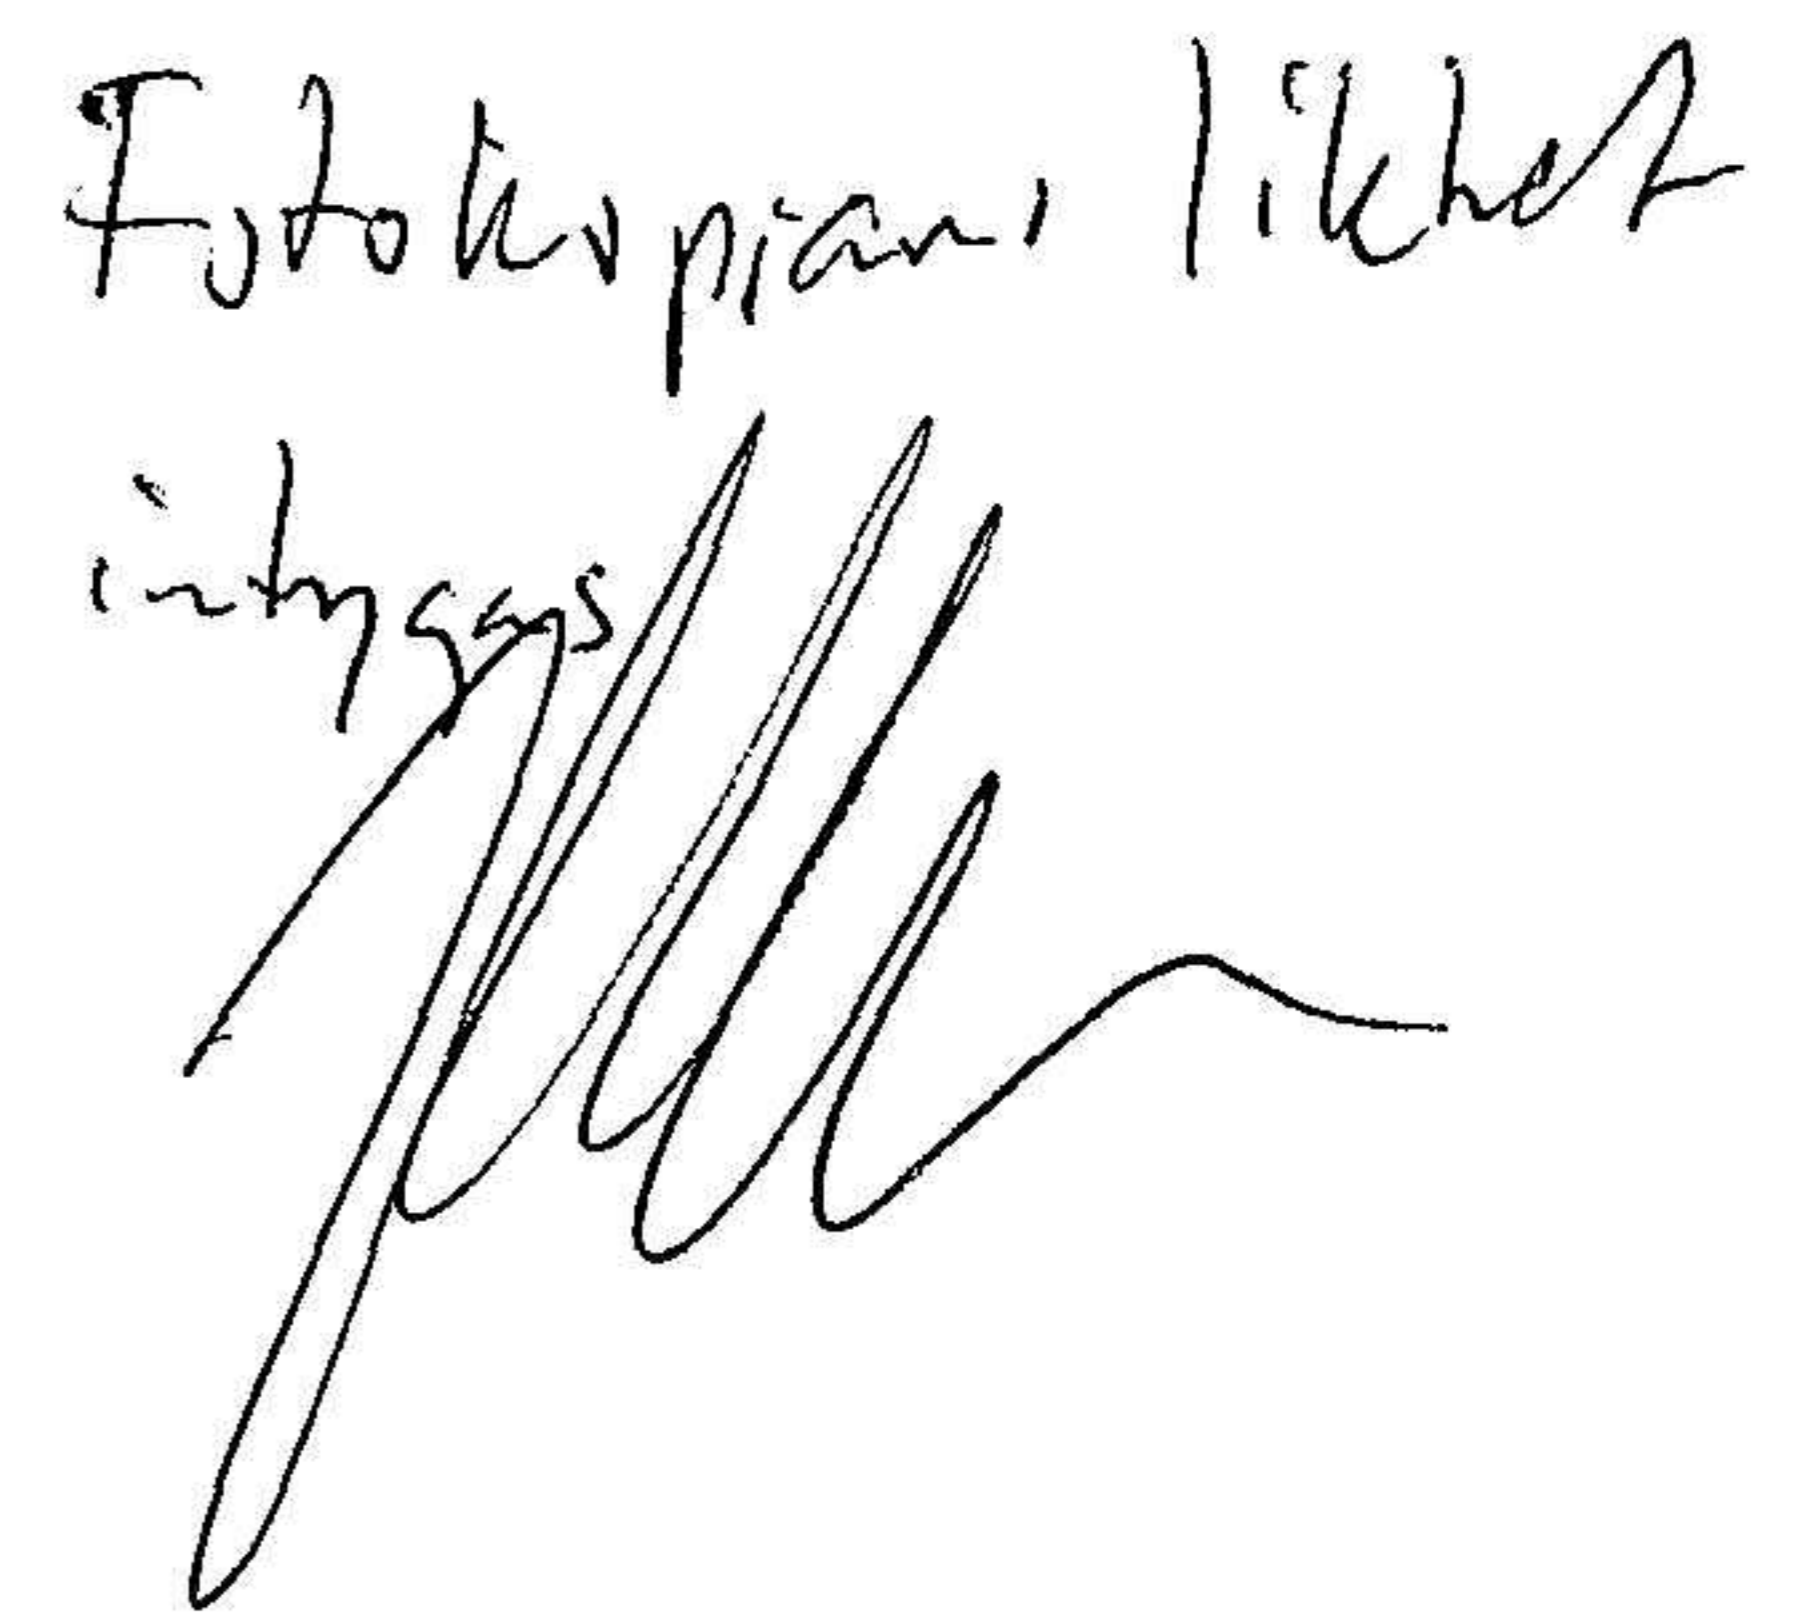 Fotokopians likhet
intygas